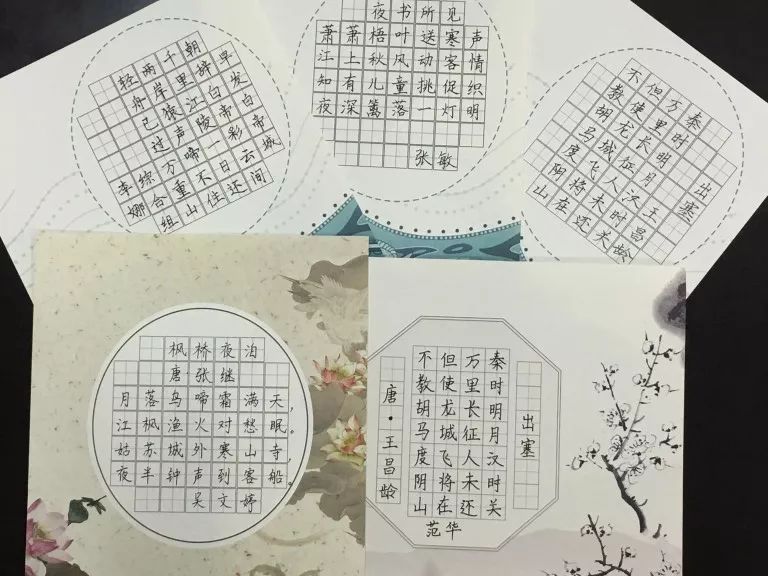 早发白帝城
朝辞白帝彩云间
千里江陵一日还
两岸猿声啼不住
轻舟已过万重山
综合组
李娜
夜书所见
萧萧梧叶送寒声
江上秋风动客情
知有儿童挑促织
夜深篱落一灯明
张敏
出塞
王昌龄
秦时明月汉时关
万里长征人未还
但使龙城飞将在
不教胡马度阴山
枫桥夜泊
唐·张继
月落乌啼霜满天,
江枫渔火对愁眠。
姑苏城外寒山寺,
夜半钟声到客船。
吴文婷
出塞
秦时明月汉时关
万里长征人未还
但使龙城飞将在
不教胡马度阴山
唐·王昌龄
范华